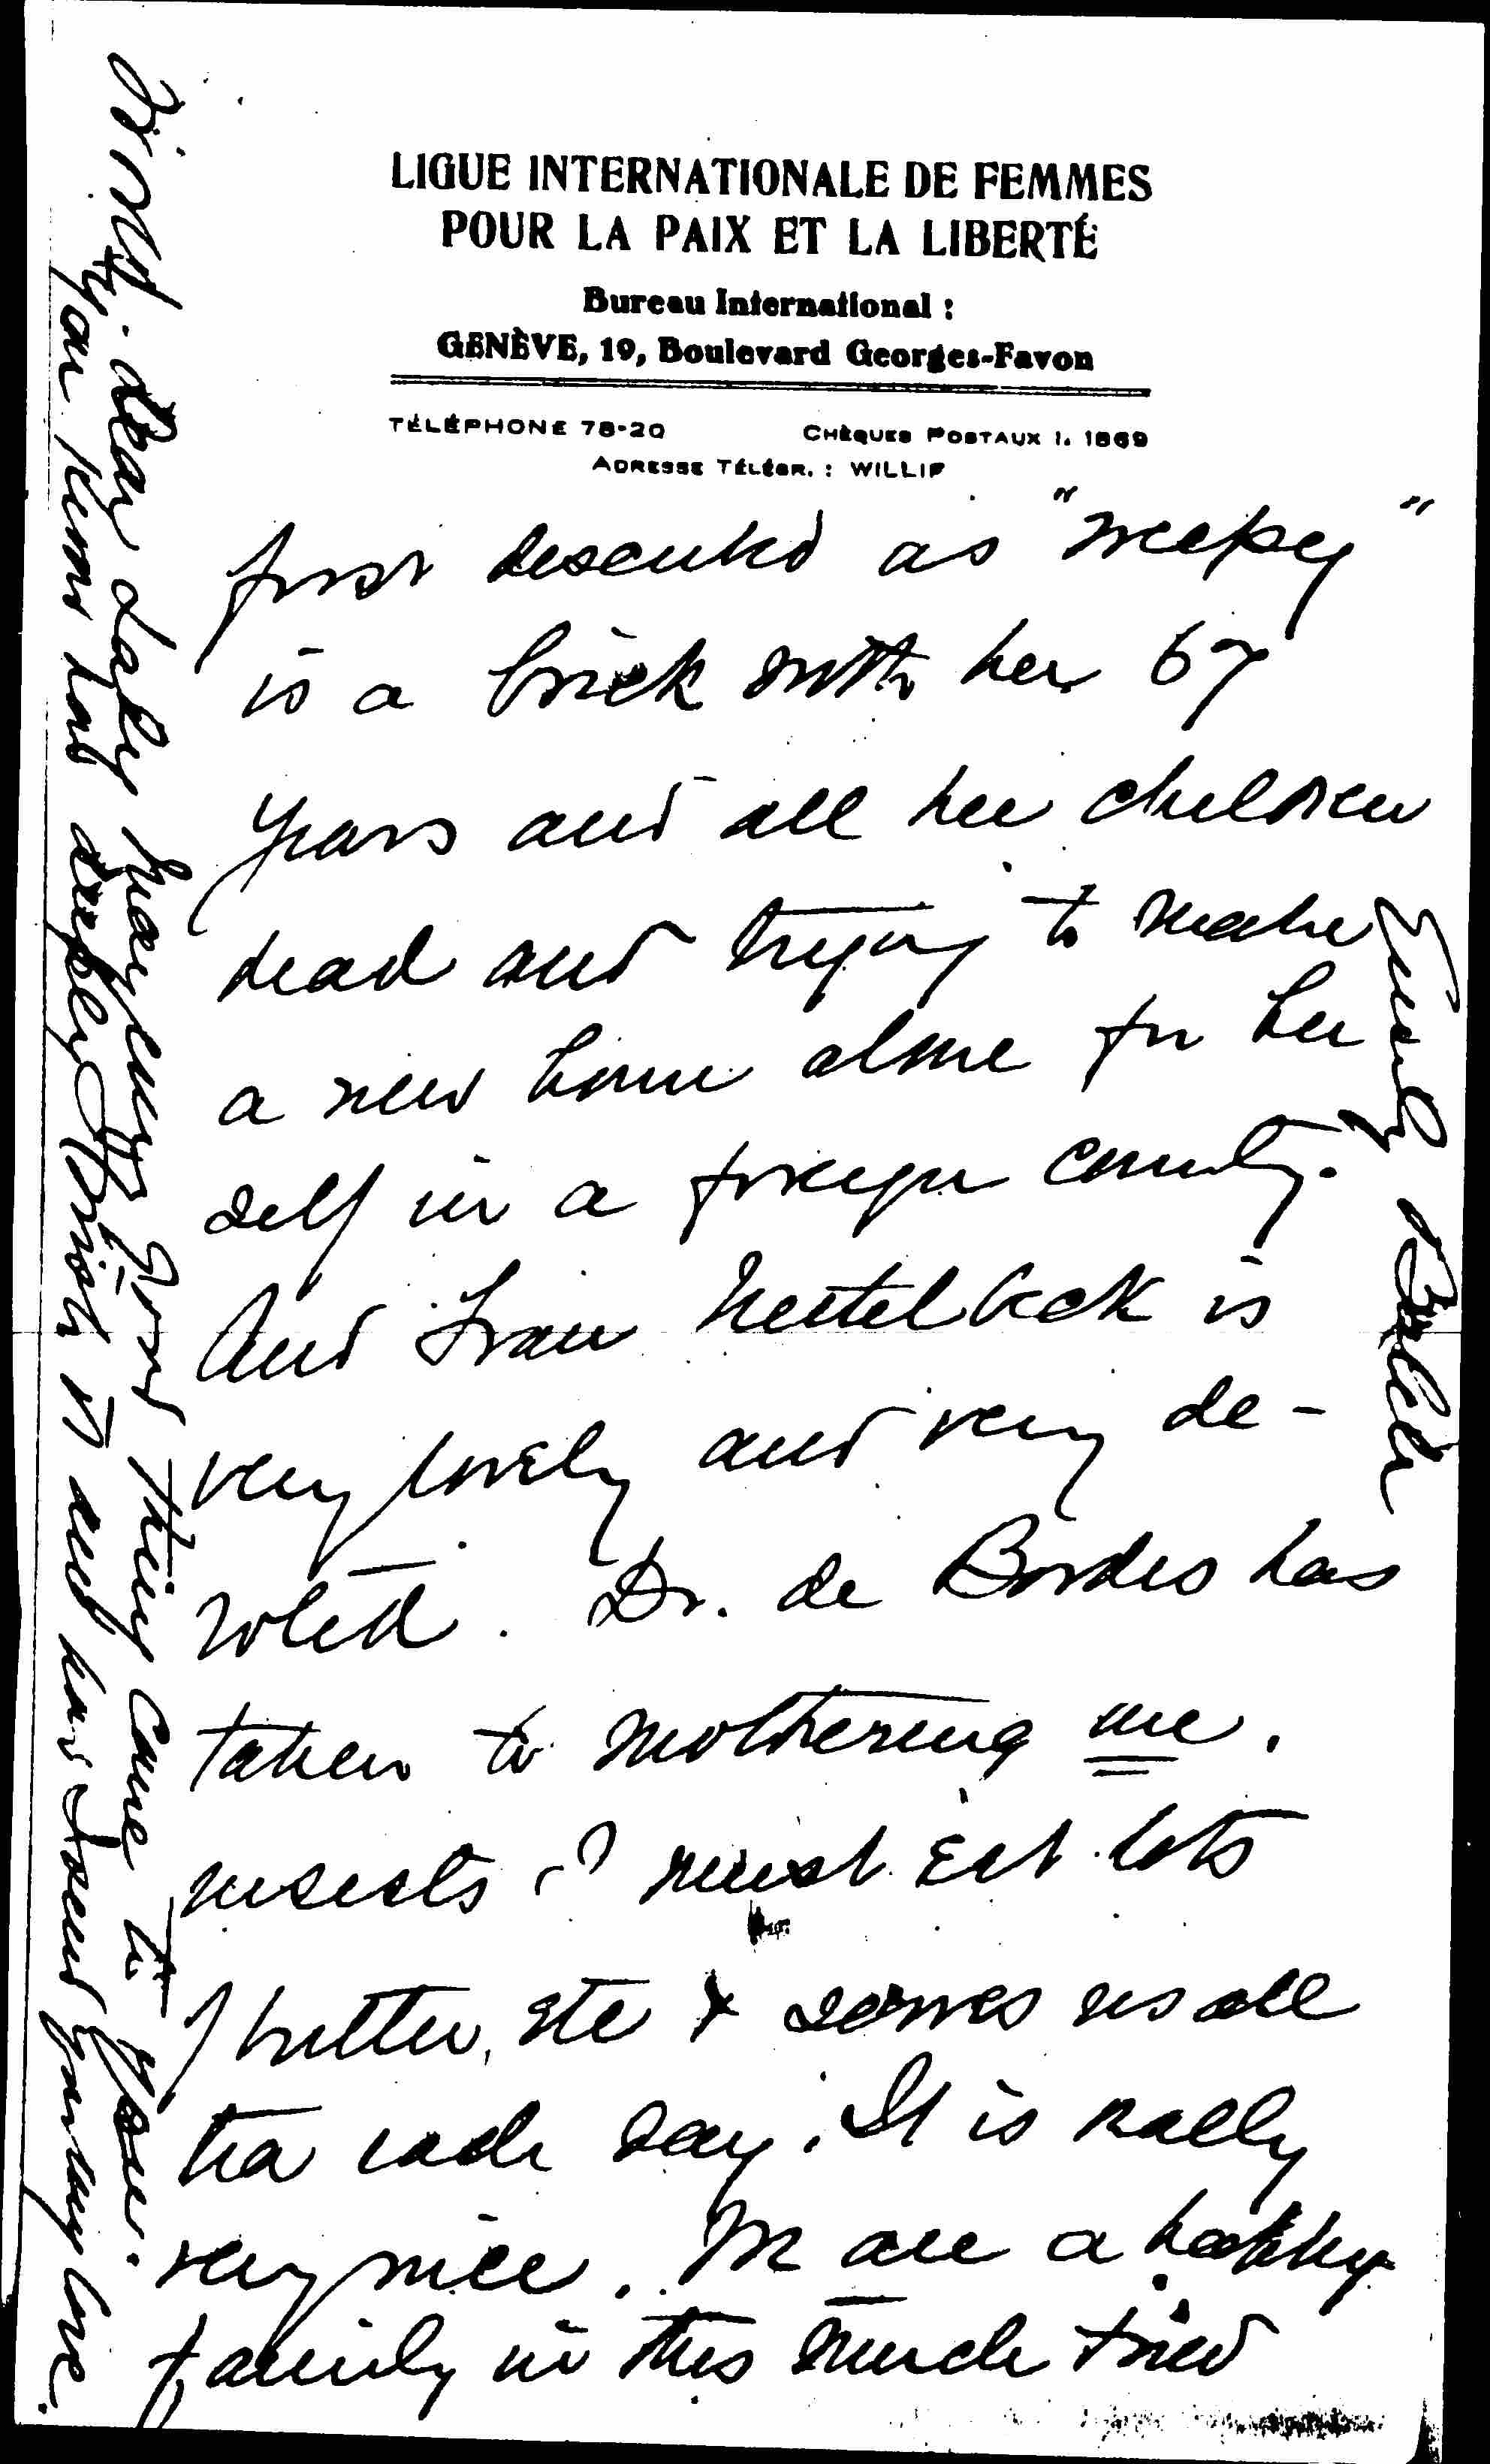 LIGUE INTERNATIONALE DE FEMMES
POUR LA PAIX ET LA LIBERTÉ
Bureau International :
GENÈVE, 19, Boulevard Georges-Favon
TÉLÉPHONE 78-20 CHÈQUES POSTAUX I. 1869
ADRESSE TÉLÉGR. : WILLIF
first described as "weepy"
is a brick with her 67
years and all her children
dead and trying to make
a new home alone for her
self in a foreign country.
And Frau Hertelbeck is
very lovely and very de-
voted. Dr. de Bordes has
taken to mothering me.
insists I must eat lots
of butter, etc & serves us all
tea each day. It is really
very nice. We are a happy
family in this much tried
world. dear lady many good things come to you.
You know how deeply I wish it and how
Emily Balch